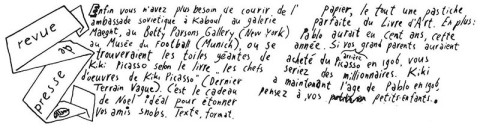 revue
de
presse
Enfin vous n'avez plus besoin de courir de l'
ambassade sovietique à Kaboul au galerie
Maeght, au Betty Parsons Gallery (New York)
au Musée du Football (Munich), ou se
trouveraient les toiles géantes de
Kiki Picasso selon le livre "les chefs
d'oeuvres de Kiki Picasso" (Dernier
Terrain Vague). C'est le cadeau
de Noel idéal pour étonner
vos amis snobs. Texte, format,
papier, le tout une pastiche
parfaite du Livre d'Art. En plus:
Pablo aurait eu cent ans, cette
année. Si vos grand parents auraient
acheté du Picasso en 1906, vous
arrière
seriez des millionaires. Kiki
a maintenant l'age de Pablo en 1906,
pensez à vos petits-enfants.